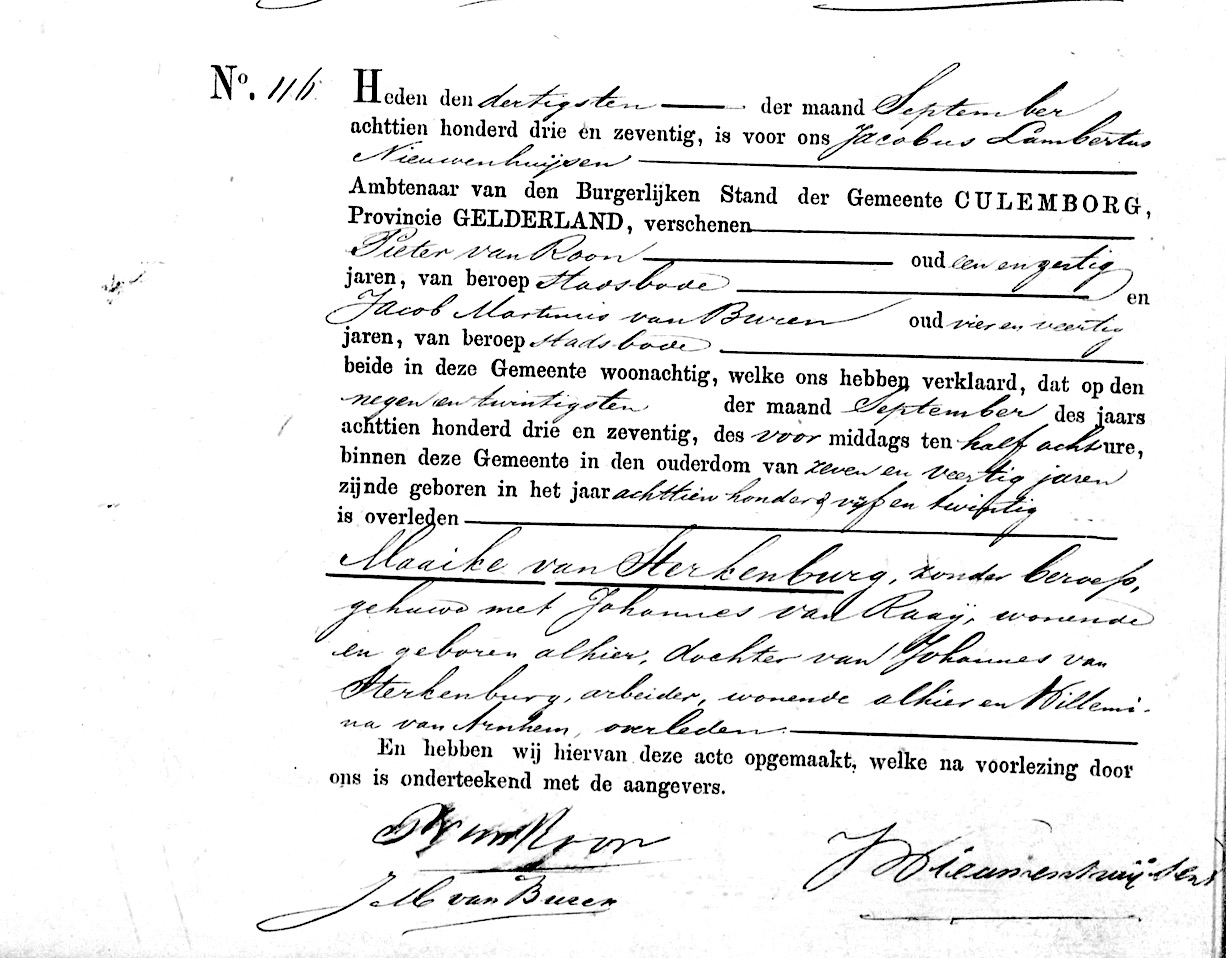 No. 116 Heden den dertigsten der maand September
achttien honderd drie en zeventig, is voor ons Jacobus Lambertus
Nieuwenhuijsen
Ambtenaar van den Burgerlijken Stand der Gemeente CULEMBORG,
Provincie GELDERLAND, verschenen
Pieter van Roon oud een en zestig
jaren, van beroep Stadsbode en
Jacob Martinus van Buren oud vier en veertig
jaren, van beroep stadsbode
beide in deze Gemeente woonachtig, welke ons hebben verklaard, dat op den
negen en twintigsten der maand September des jaars
achttien honderd drie en zeventig, des voor middags ten half acht ure,
binnen deze Gemeente in den ouderdom van zeven en veertig jaren
zijnde geboren in het jaar achttien honderd vijf en twintig
is overleden
Maaike van Sterkenburg, zonder beroep,
gehuwd met Johannes van Raaij, wonende
en geboren alhier, dochter van Johannes van
Sterkenburg, arbeider, wonende alhier en Willemi-
na van Arnhem, overleden.
En hebben wij hiervan deze acte opgemaakt, welke na voorlezing door
ons is onderteekend met de aangevers.
P van Roon
J Nieuwenhuijsen
J M van Buren